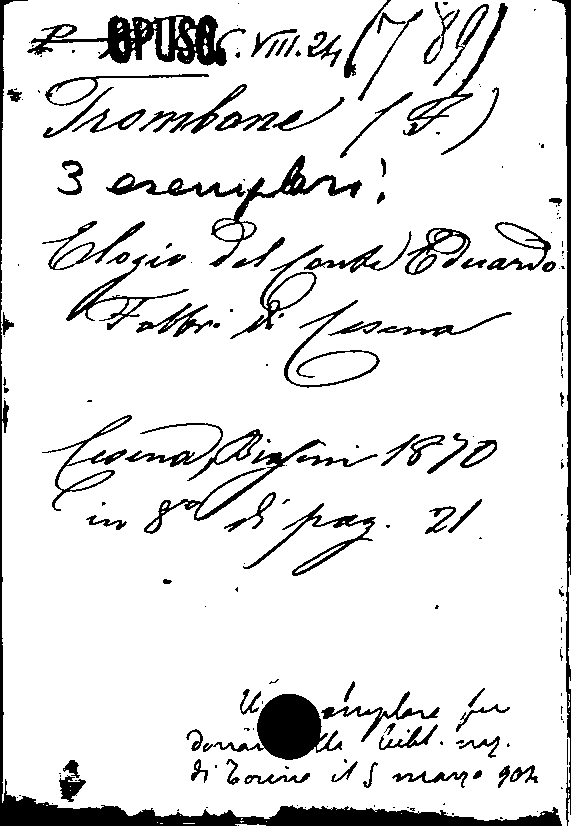 OPUSC. VIII.24 (789)
Trombone (F.)
3 esemplari!
Elogio del Conte Eduardo
Fabbri di Cesena
Cesena, Biasini 1870
in 8º di pag. 21
esemplare fu
bibl. naz.
di Torino il 5 marzo 904